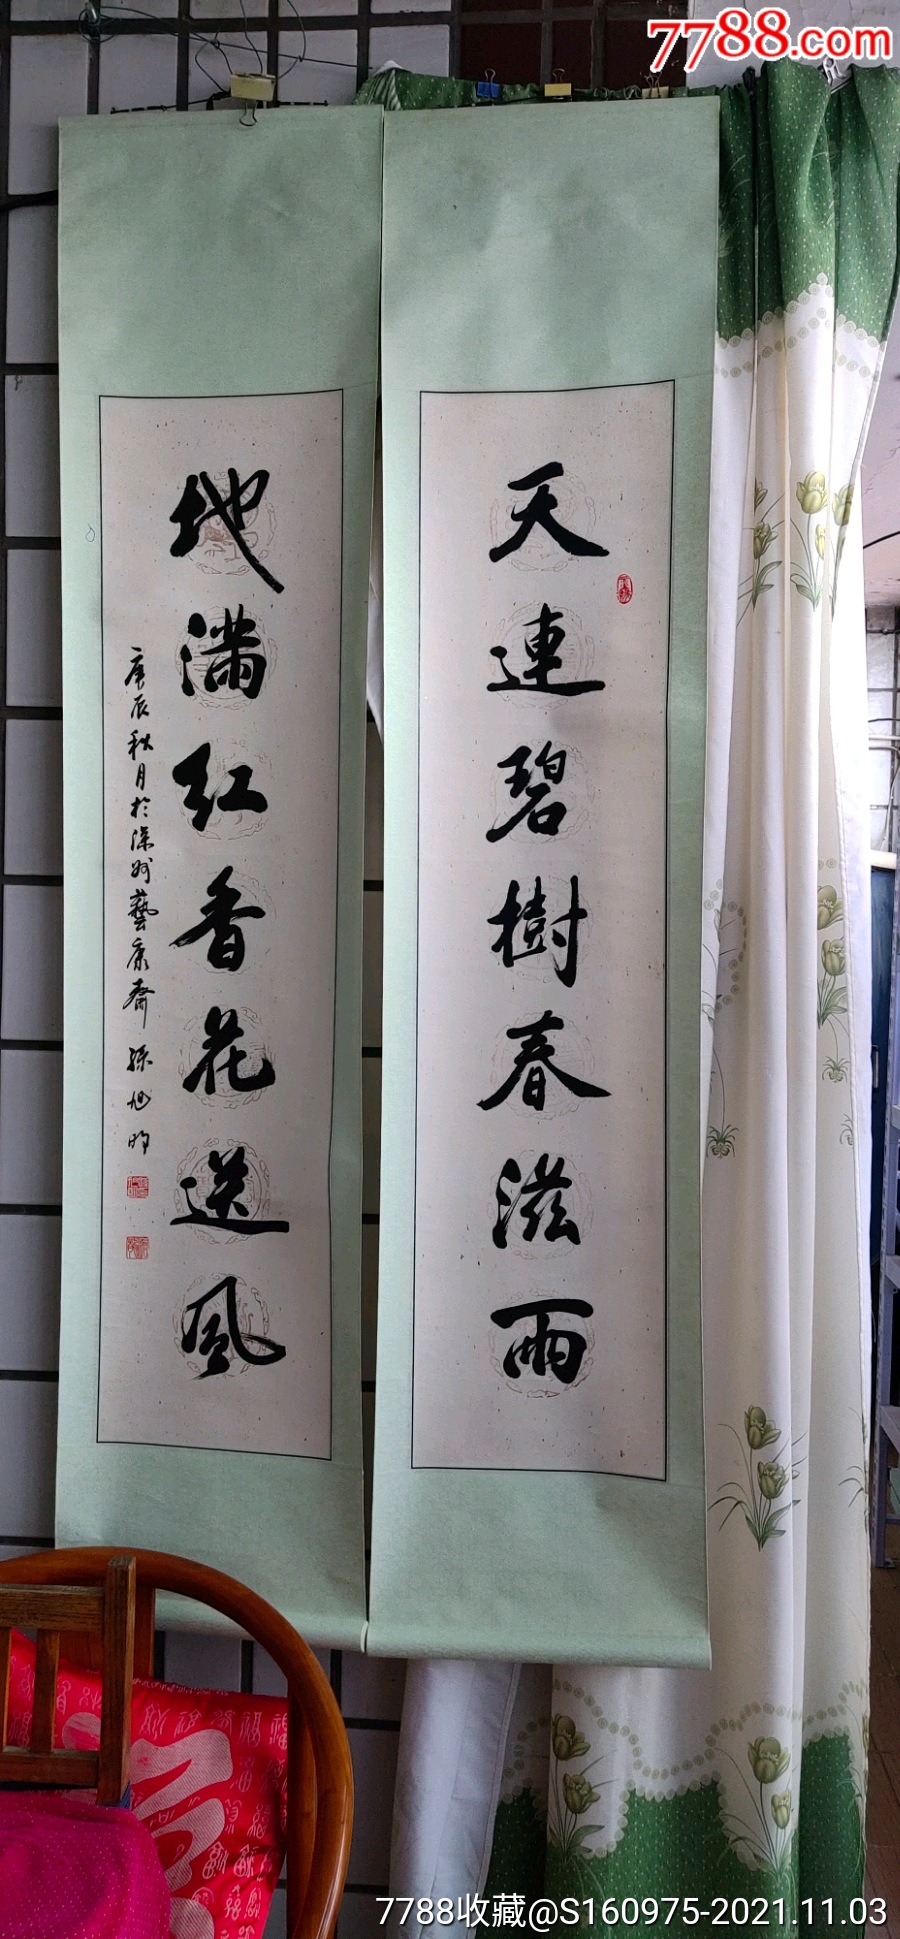 7788.com
天連碧樹春滋雨
地满红香花送風
庚辰秋月於深圳藝康齋 孫旭昕
7788收藏@S160975-2021.11.03